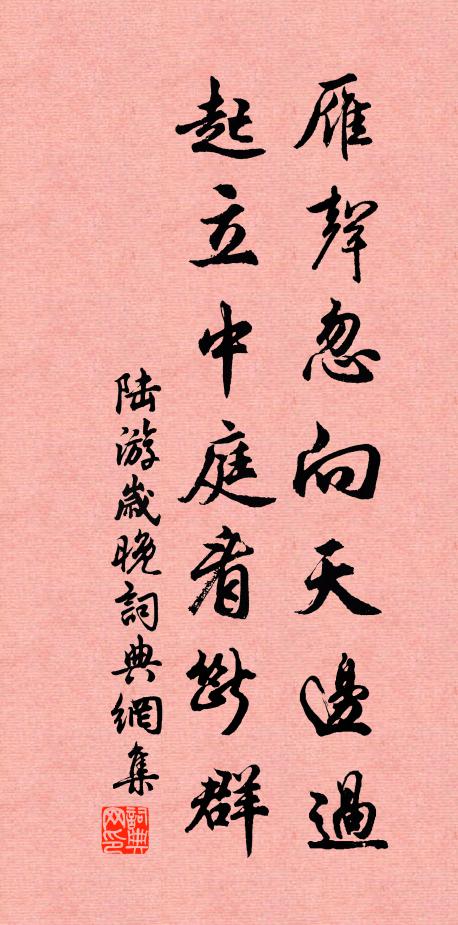 雁聲忽向天邊過
起立中庭看斷群
陸游歲晚詞典網集
詞典网印